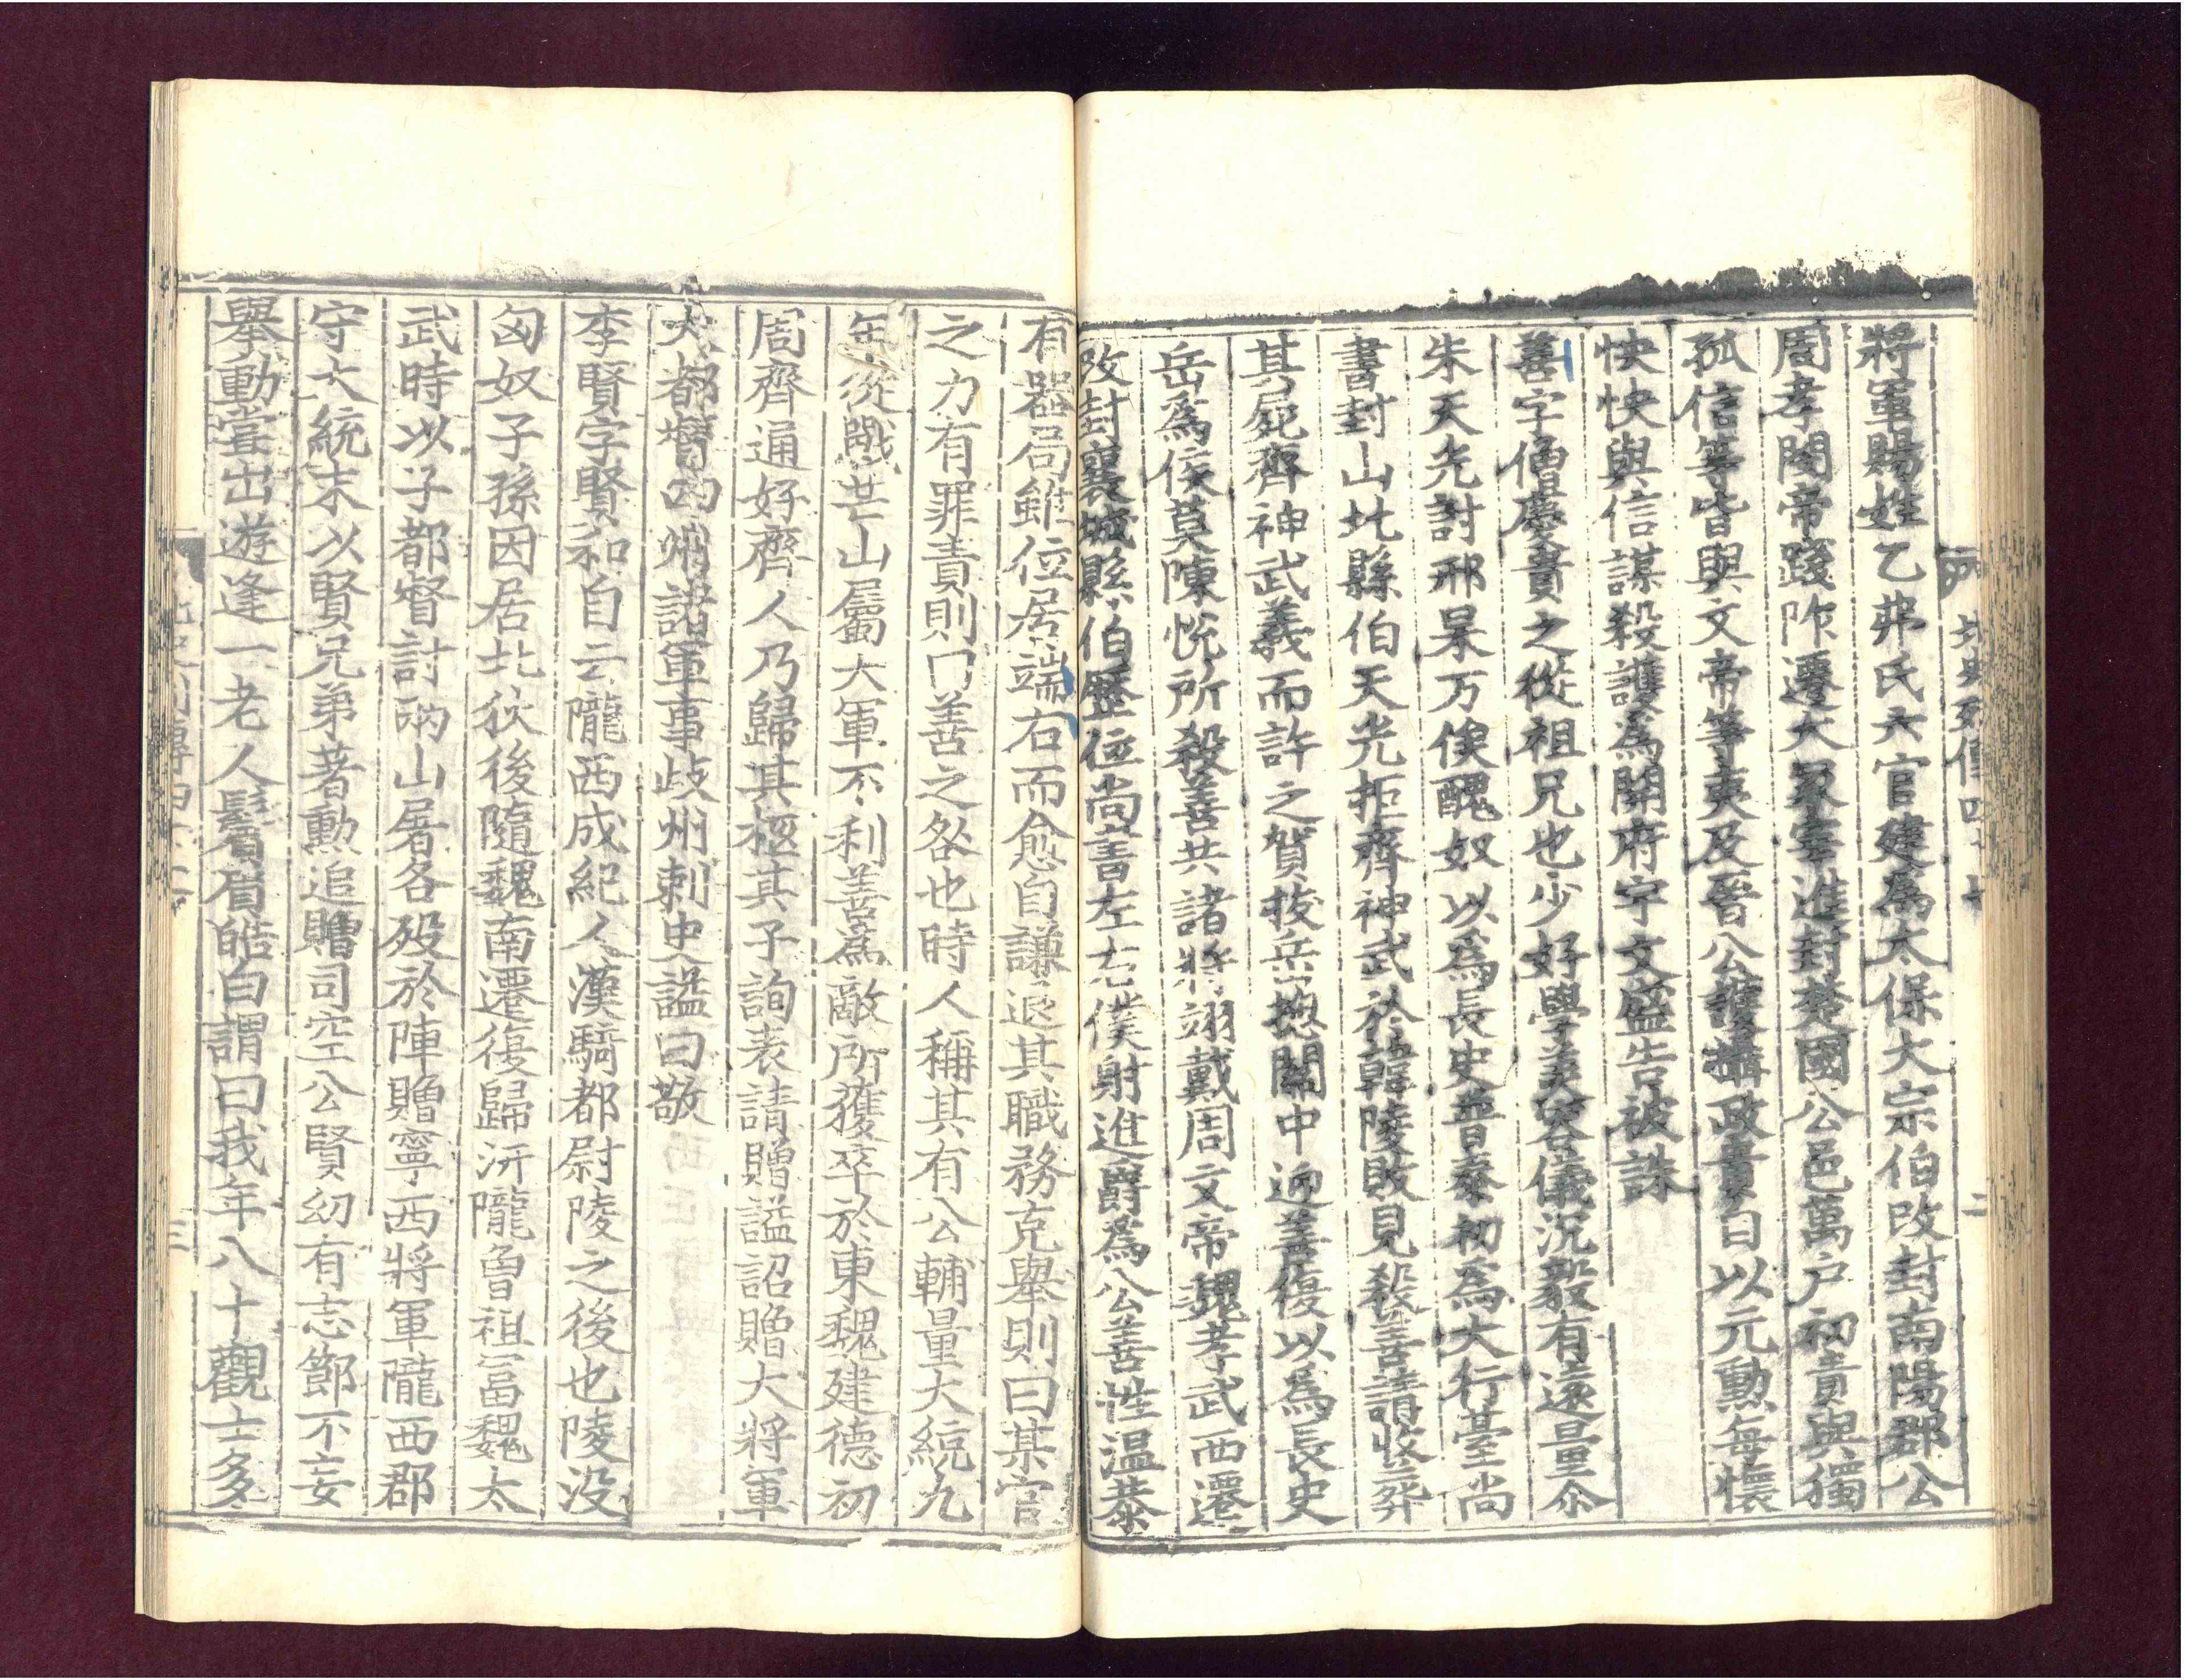 將軍賜姓乙弗氏六官建爲太保大宗伯改封南陽郡公
周孝閔帝踐阼遷大冢宰進封楚國公邑萬户初貴與獨
孤信等皆與文帝等夷及晉公護攝政貴自以元勳每懷
怏怏與信謀殺護爲開府宇文盛告被誅
善字僧慶貴之從祖兄也少好學美容儀沉毅有遠量尒
朱天光討邢杲万俟醜奴以爲長史普泰初爲大行臺尚
書封山北縣伯天光拒齊神武於韓陵敗見殺善請收葬
其屍齊神武義而許之賀拔岳揔關中迎善復以爲長史
岳爲侯莫陳悅所殺善共諸將翊戴周文帝魏孝武西遷
改封襄城縣伯歷位尚書左右僕射進爵爲公善性温恭
有器局雖位居端右而愈自謙退其職務克舉則曰某官
之力有罪責則曰善之咎也時人稱其有公輔量大統九
年從戰芒山屬大軍不利善爲敵所獲卒於東魏建德初
周齊通好齊人乃歸其柩其子詢表請贈謚詔贈大將軍
大都督四州諸軍事歧州刺史謚曰敬
李賢字賢和自云隴西成紀人漢騎都尉陵之後也陵没
匈奴子孫因居北狄後隨魏南遷復歸汧隴曾祖冨魏太
武時以子都督討兩山屠各殁於陣贈寧西將軍隴西郡
守大統末以賢兄弟著勳追贈司空公賢幼有志節不妄
舉動嘗出遊逢一老人鬚眉皓白謂曰我年八十觀士多
北史列傳四十七
二
三